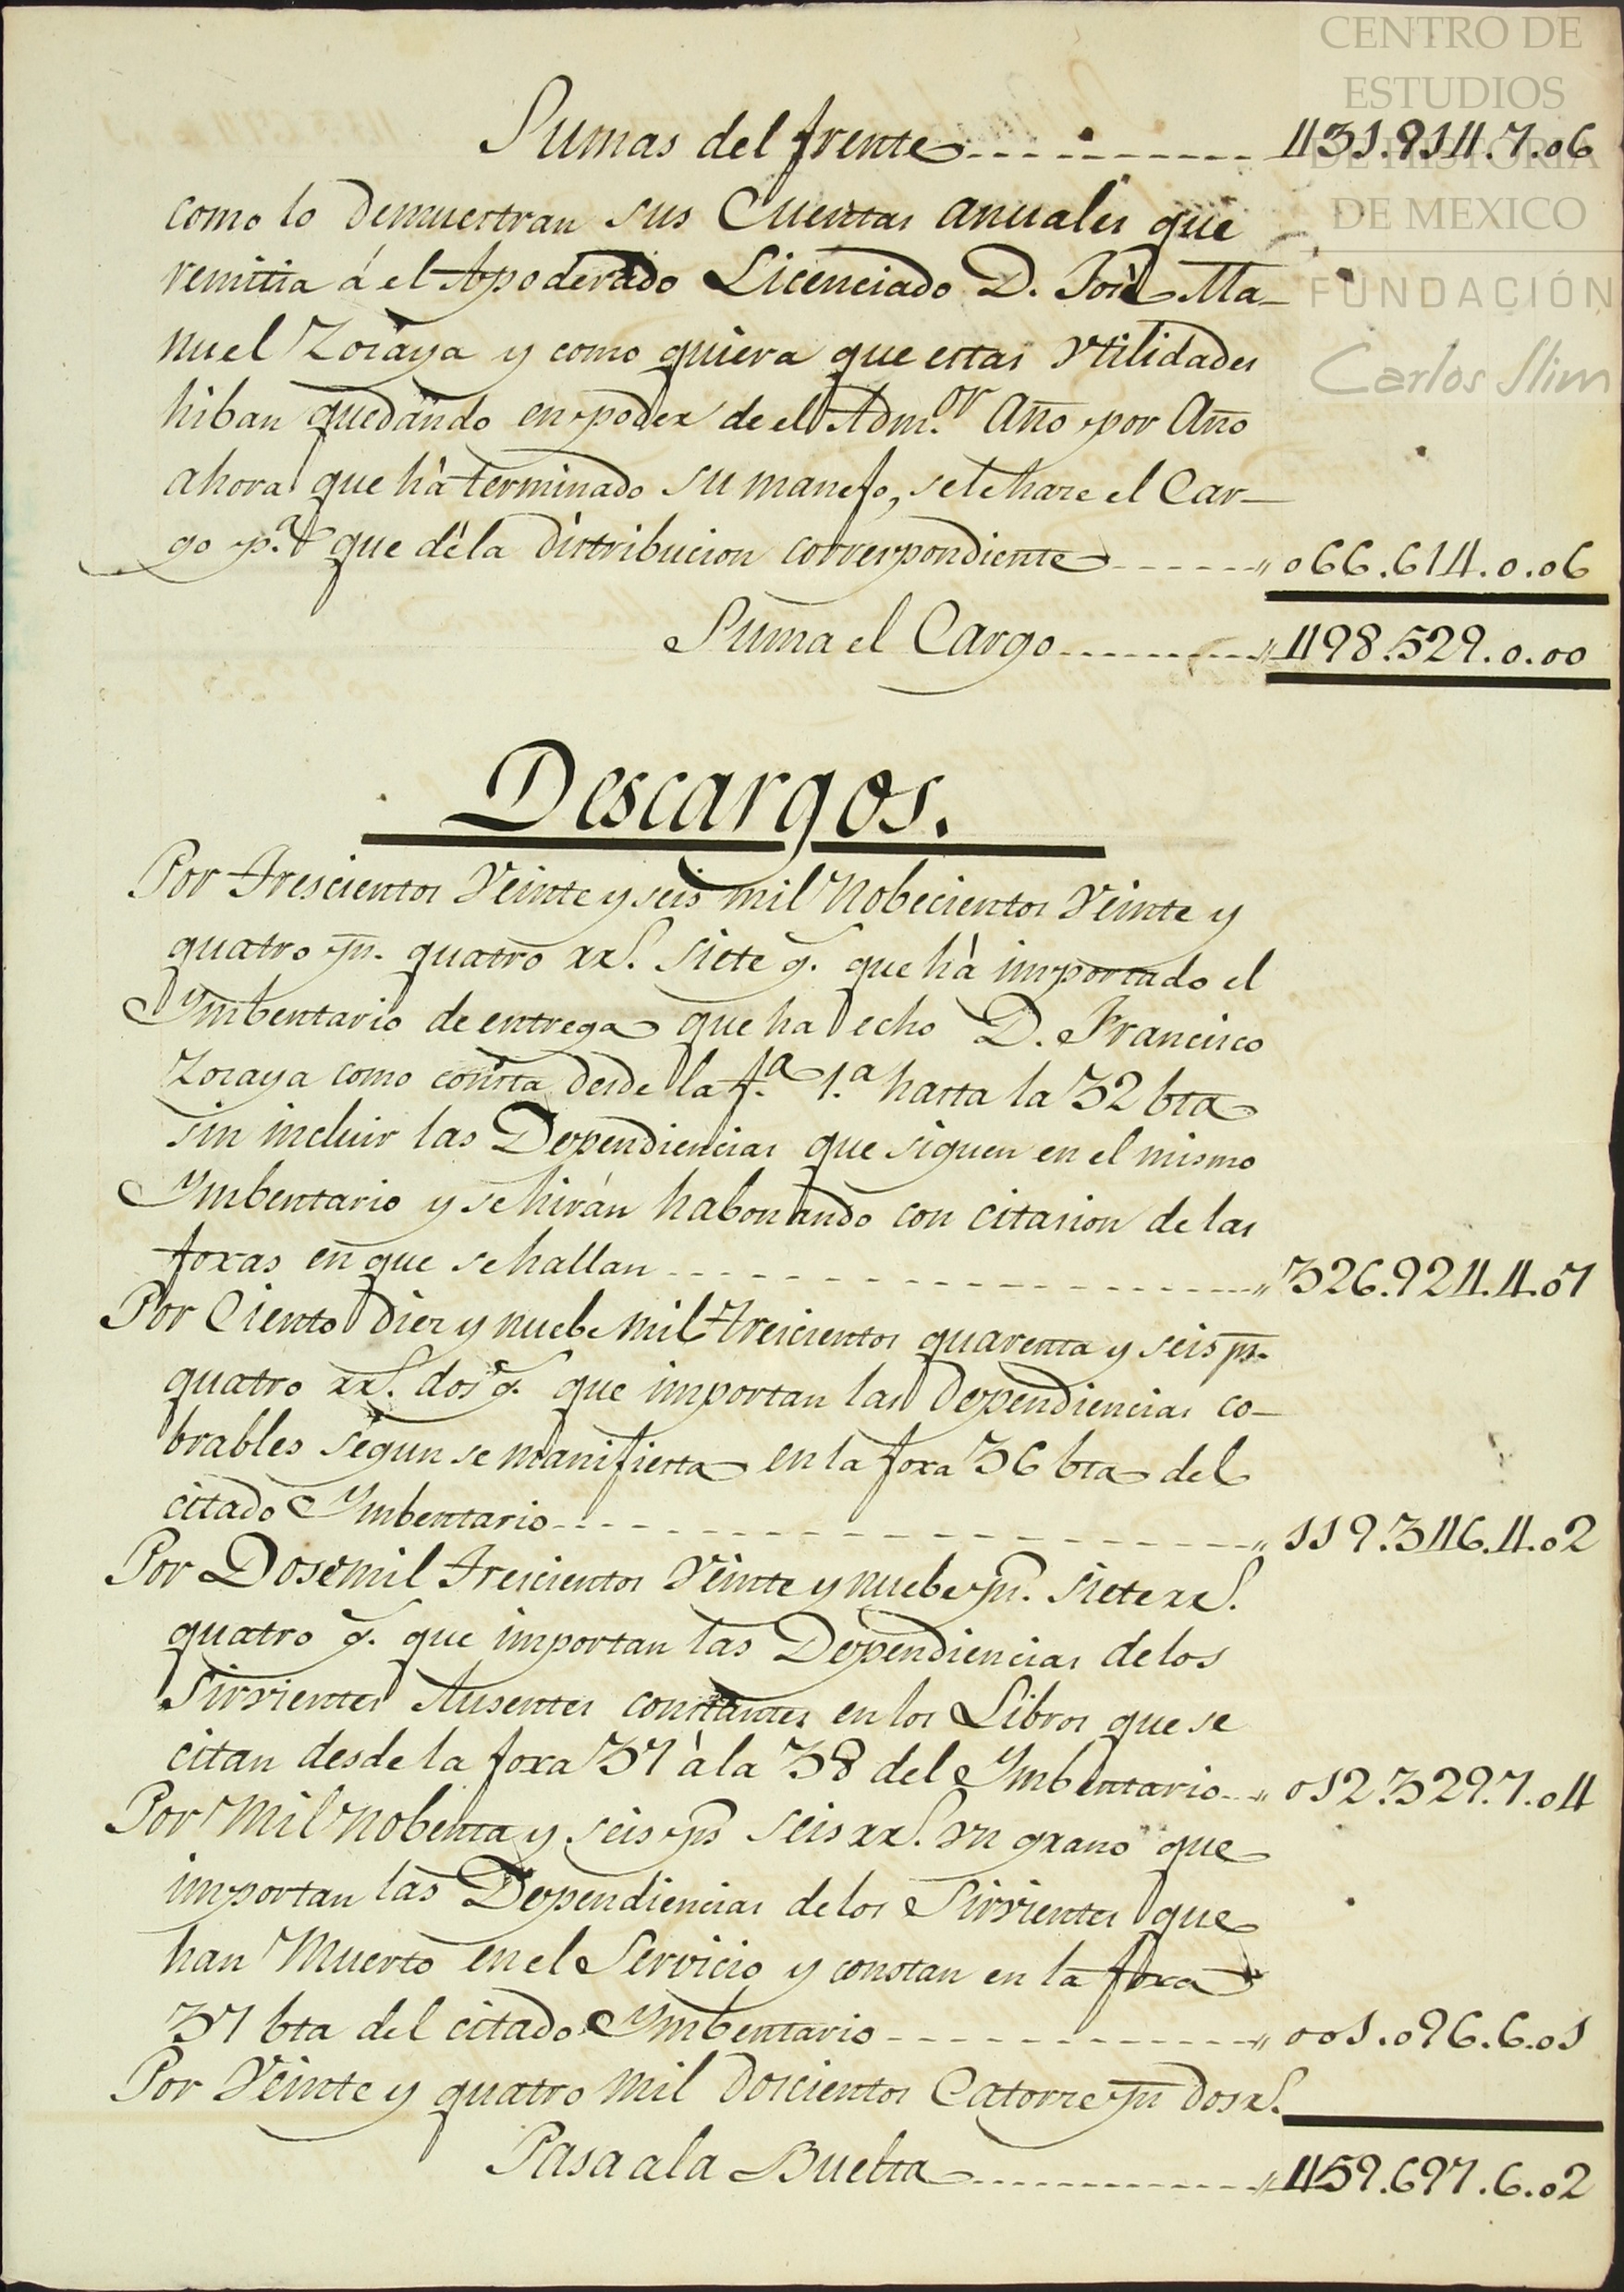 CENTRO DE
ESTUDIOS
DE HISTORIA
DE MEXICO
FUNDACIÓN
Carlos Slim
Sumas del frente ---------- 431.914.7.06
como lo demuestran sus Cuentas anuales que
remitia á el Apoderado Licenciado D. José Ma-
nuel Zozaya y como quiera que estas Vtilidades
hiban quedando en poder de el Adm.or Año por Año
ahora que hà terminado su manejo, se le haze el Car-
go p.a que dè la distribucion correspondiente ------ 066.614.0.06
Suma el Cargo --------- 498.529.0.00
Descargos.
Por Trescientos Veinte y seis mil Nobecientos Veinte y
quatro ps. quatro rr.s siete g.s que hà importado el
Ymbentario de entrega que ha echo D. Francisco
Zozaya como consta desde la f.a 1.a hasta la 32 bta
sin incluir las Dependiencias que siguen en el mismo
Ymbentario y se hirán habonando con citasion de las
foxas en que se hallan -------------------- 326.924.4.07
Por Ciento diez y nuebe mil trescientos quarenta y seis ps.
quatro rr.s dos g.s que importan las Dependiencias co-
brables segun se manifiesta en la foxa 36 bta del
citado Ymbentario -------------------- 119.346.4.02
Por Dose mil Trescientos Veinte y nuebe ps. siete rr.s
quatro g.s que importan las Dependiencias de los
Sirvientes Ausentes constantes en los Libros que se
citan desde la foxa 37 à la 38 del Ymbentario -- 012.329.7.04
Por Mil Nobenta y seis ps seis rr.s Vn grano que
importan las Dependiencias de los Sirvientes que
han Muerto en el Servicio y constan en la foxa
37 bta del citado Ymbentario ------------ 001.096.6.01
Por Veinte y quatro mil doscientos Catorze ps dos rr.s
Pasa a la Buelta ------------ 459.697.6.02